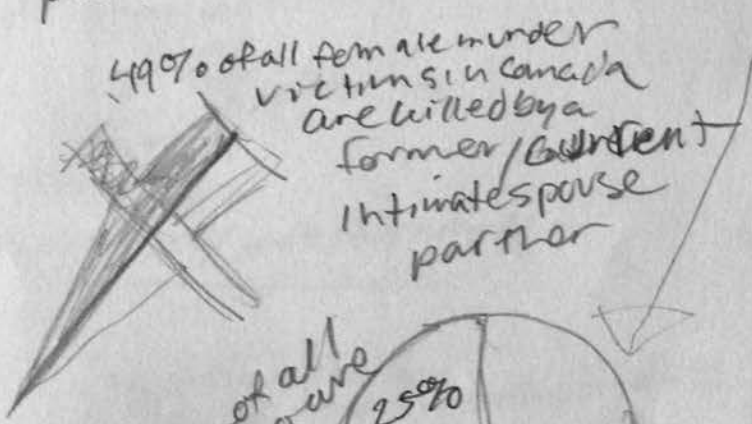 49% of all female murder
victims in Canada
are killed by a
former/current
intimate spouse
partner
of all
are
25%